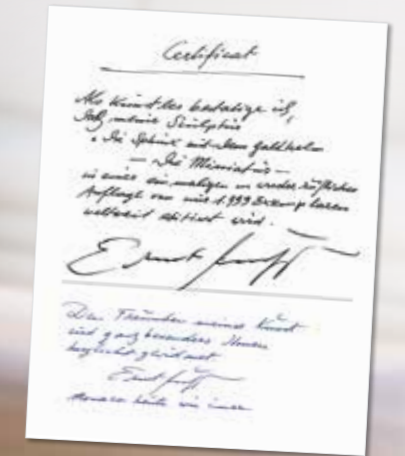 Certificat
Als Künstler bestätige ich,
daß meine Skulptur
"Die Sphinx mit dem Goldhelm
— Die Miniatur —
in einer einmaligen
Auflage von nur 1.999 Exemplaren
weltweit editiert wird.
Ernst Fuchs
Den Freunden meiner Kunst
und ganz besonders Ihnen
herzlichst gewidmet
Ernst Fuchs
Monaco heute wie immer